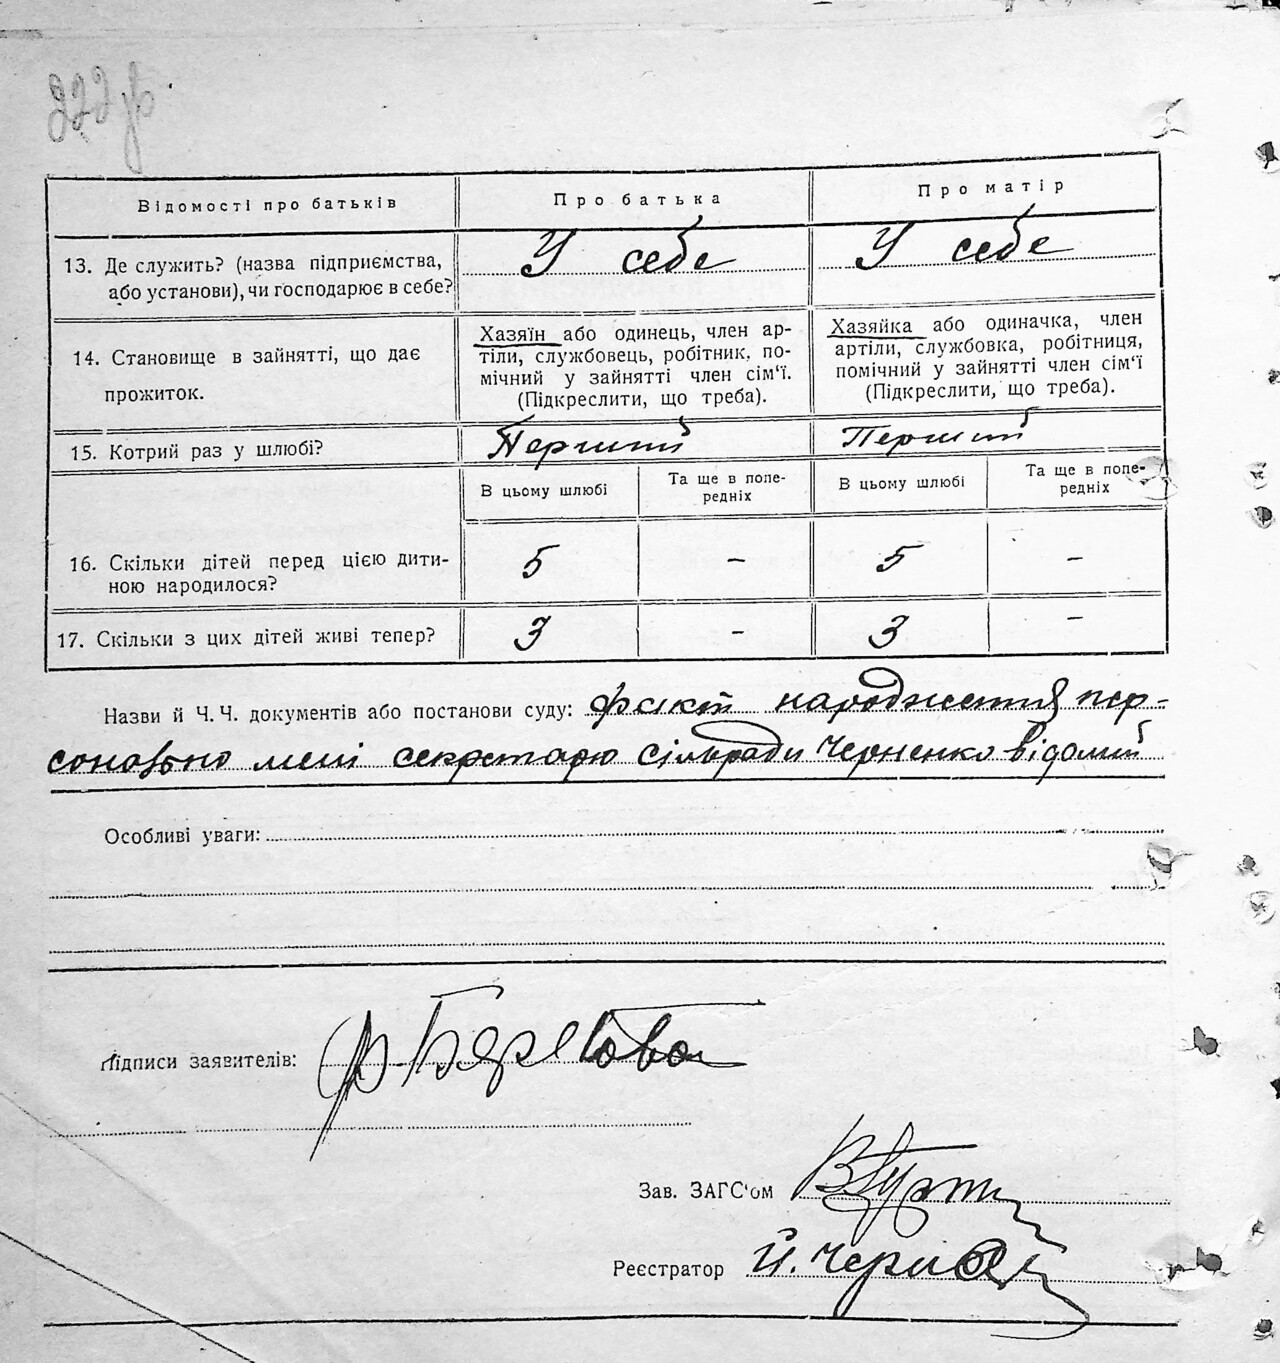 222 зв.
Відомості про батьків
Про батька
Про матір
13. Де служить? (назва підприємства,
або установи), чи господарює в себе?
У себе
У себе
14. Становище в зайнятті, що дає
прожиток.
Хазяїн або одинець, член ар-
тіли, службовець, робітник, по-
мічний у зайнятті член сім'ї.
(Підкреслити, що треба).
Хазяйка або одиначка, член
артіли, службовка, робітниця,
помічний у зайнятті член сім'ї
(Підкреслити, що треба).
15. Котрий раз у шлюбі?
Перший
Перший
В цьому шлюбі
Та ще в попе-
редніх
В цьому шлюбі
Та ще в попе-
редніх
16. Скільки дітей перед цією дити-
ною народилося?
5
–
5
–
17. Скільки з цих дітей живі тепер?
3
–
3
–
Назви й Ч.Ч. документів або постанови суду: Факт народження пер-
сонально мені секретарю сільради Черненко відомий
Особливі уваги:
Підписи заявителів:
Зав. ЗАГС'ом
Реєстратор Й.